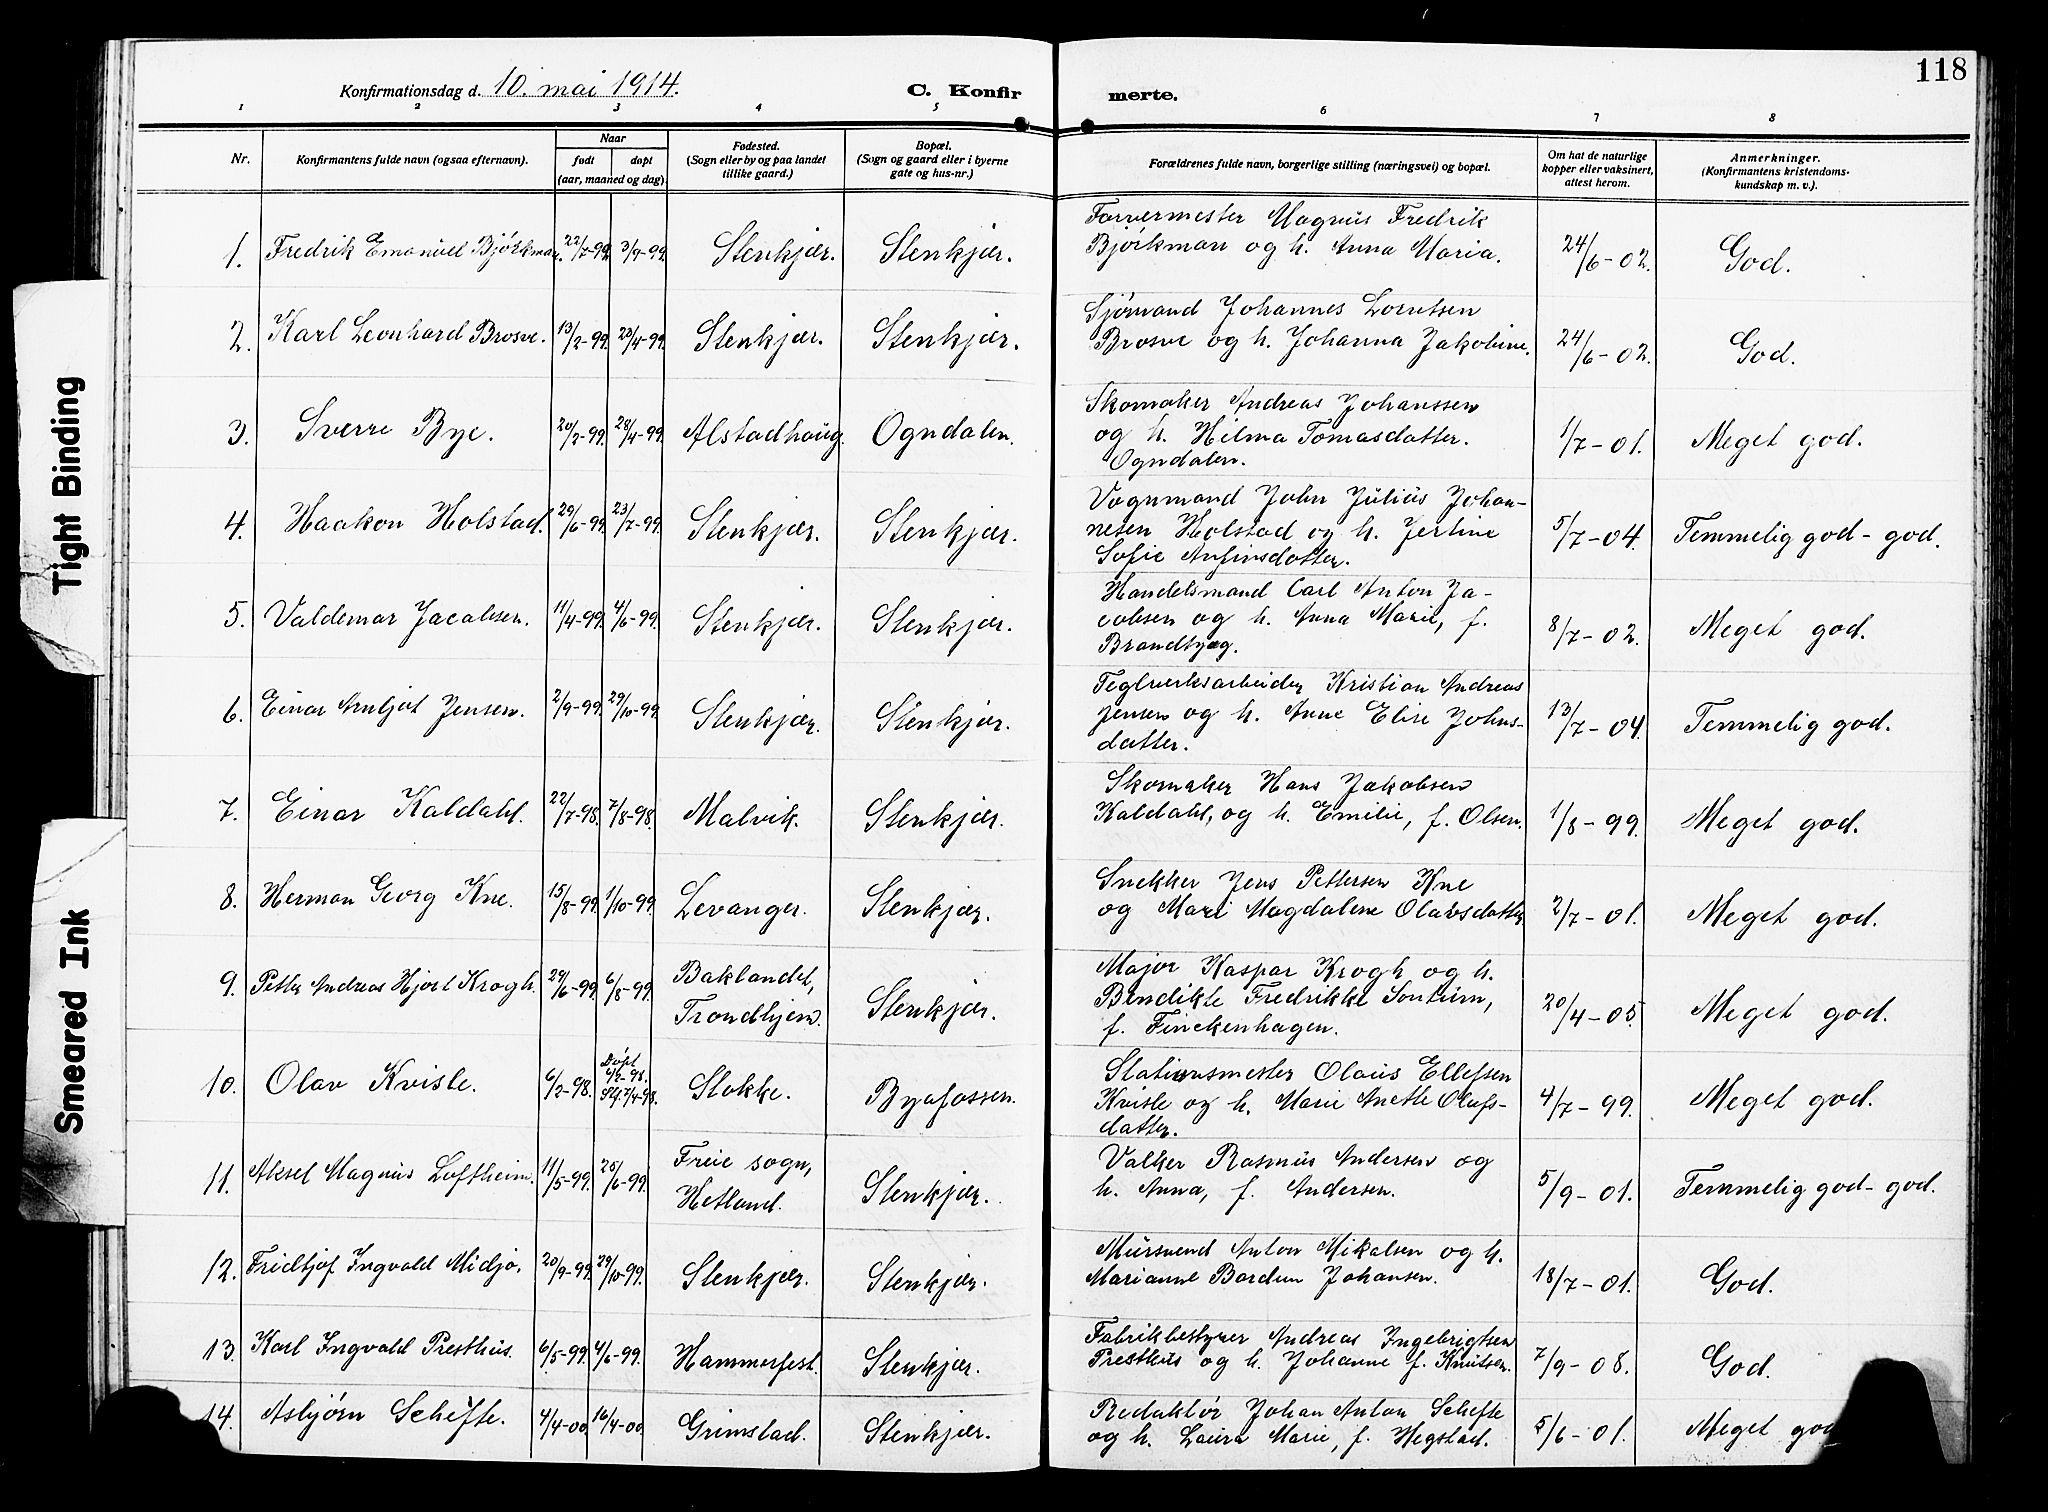 118
Konfirmationsdag d. 10. mai 1914.
C. Konfirmerte.
1 2 3 4 5 6 7 8
Nr.
Konfirmantens fulde navn (ogsaa efternavn).
Naar
født
døpt
(aar, maaned og dag).
Fødested.
(Sogn eller by og paa landet
tillike gaard.)
Bopæl.
(Sogn og gaard eller i byerne
gate og hus-nr.)
Forældrenes fulde navn, borgerlige stilling (næringsvei) og bopæl.
Om hat de naturlige
kopper eller vaksinert,
attest herom.
Anmerkninger.
(Konfirmantens kristendoms-
kundskap m. v.).
1. Fredrik Emanuel Bjørkman. 22/7-99. 3/9-99. Stenkjær. Stenkjær. Farvermester Magnus Fredrik
Bjørkman og h. Anna Maria. 24/6-02. God.
2. Karl Leonhard Brosve. 13/2-99. 23/4-99. Stenkjær. Stenkjær. Sjømand Johannes Lorntsen
Brosve og h. Johanna Jakobine. 24/6-02. God.
3. Sverre Bye. 20/2-99. 28/4-99. Alstadhaug. Ogndalen. Skomaker Andreas Johanssen
og h. Hilma Tomasdatter.
Ogndalen. 1/7-01. Meget god.
4. Haakon Holstad. 29/6-99. 23/7-99. Stenkjær. Stenkjær. Vognmand John Julius Johan-
nesen Holstad og h. Jertine
Sofie Anfinsdatter. 5/7-04. Temmelig god-god.
5. Valdemar Jacobsen. 11/4-99. 4/6-99. Stenkjær. Stenkjær. Handelsmand Carl Anton Ja-
cobsen og h. Anna Marie, f.
Brandtzæg. 8/7-02. Meget god.
6. Einar Arnljot Jensen. 2/9-99. 29/10-99. Stenkjær. Stenkjær. Teglverksarbeider Kristian Andreas
Jensen og h. Anne Elise Johns-
datter. 13/7-04. Temmelig god.
7. Einar Kaldahl. 22/7-98. 7/8-98. Malvik. Stenkjær. Skomaker Hans Jakobsen
Kaldahl, og h. Emilie, f. Olsen. 1/8-99. Meget god.
8. Herman Georg Kne. 15/8-99. 1/10-99. Levanger. Stenkjær. Snekker Jens Pettersen Kne
og Mari Magdalene Olausdatter 2/7-01. Meget god.
9. Petter Andreas Hjort Krogh. 29/6-99. 6/8-99. Baklandet,
Trondhjem. Stenkjær. Major Kaspar Krogh og h.
Bendikte Fredrikke Sontum,
f. Finckenhagen. 20/4-05. Meget god.
10. Olav Kvisle. 6/2-98. Døpt
4/2-98.
Stf. 7/4-98. Stokke. Byafossen. Stationsmester Olaus Ellefsen
Kvisle og h. Marie Anette Olufs-
datter. 4/7-99. Meget god.
11. Aksel Magnus Loftheim. 11/5-99. 25/6-99. Freie sogn,
Hetland. Stenkjær. Valker Rasmus Andersen og
h. Anna, f. Andersen. 5/9-01. Temmelig god-god.
12. Fridtjof Ingvald Midjo. 20/9-99. 29/10-99. Stenkjær. Stenkjær. Mursvend Anton Mikalsen og h.
Marianne Bardun Johansen. 18/7-01. God.
13. Karl Ingvald Presthus. 6/5-99. 4/6-99. Hammerfest. Stenkjær. Fabrikbestyrer Andreas Ingebrigtsen
Presthus og h. Johanne f. Knutsen. 7/9-08. God.
14. Asbjørn Schefte. 4/4-00. 16/4-00. Grimstad. Stenkjær. Redaktør Johan Anton Schefte
og h. Laura Marie, f. Hegstad. 5/6-01. Meget god
Tight Binding
Smeared Ink